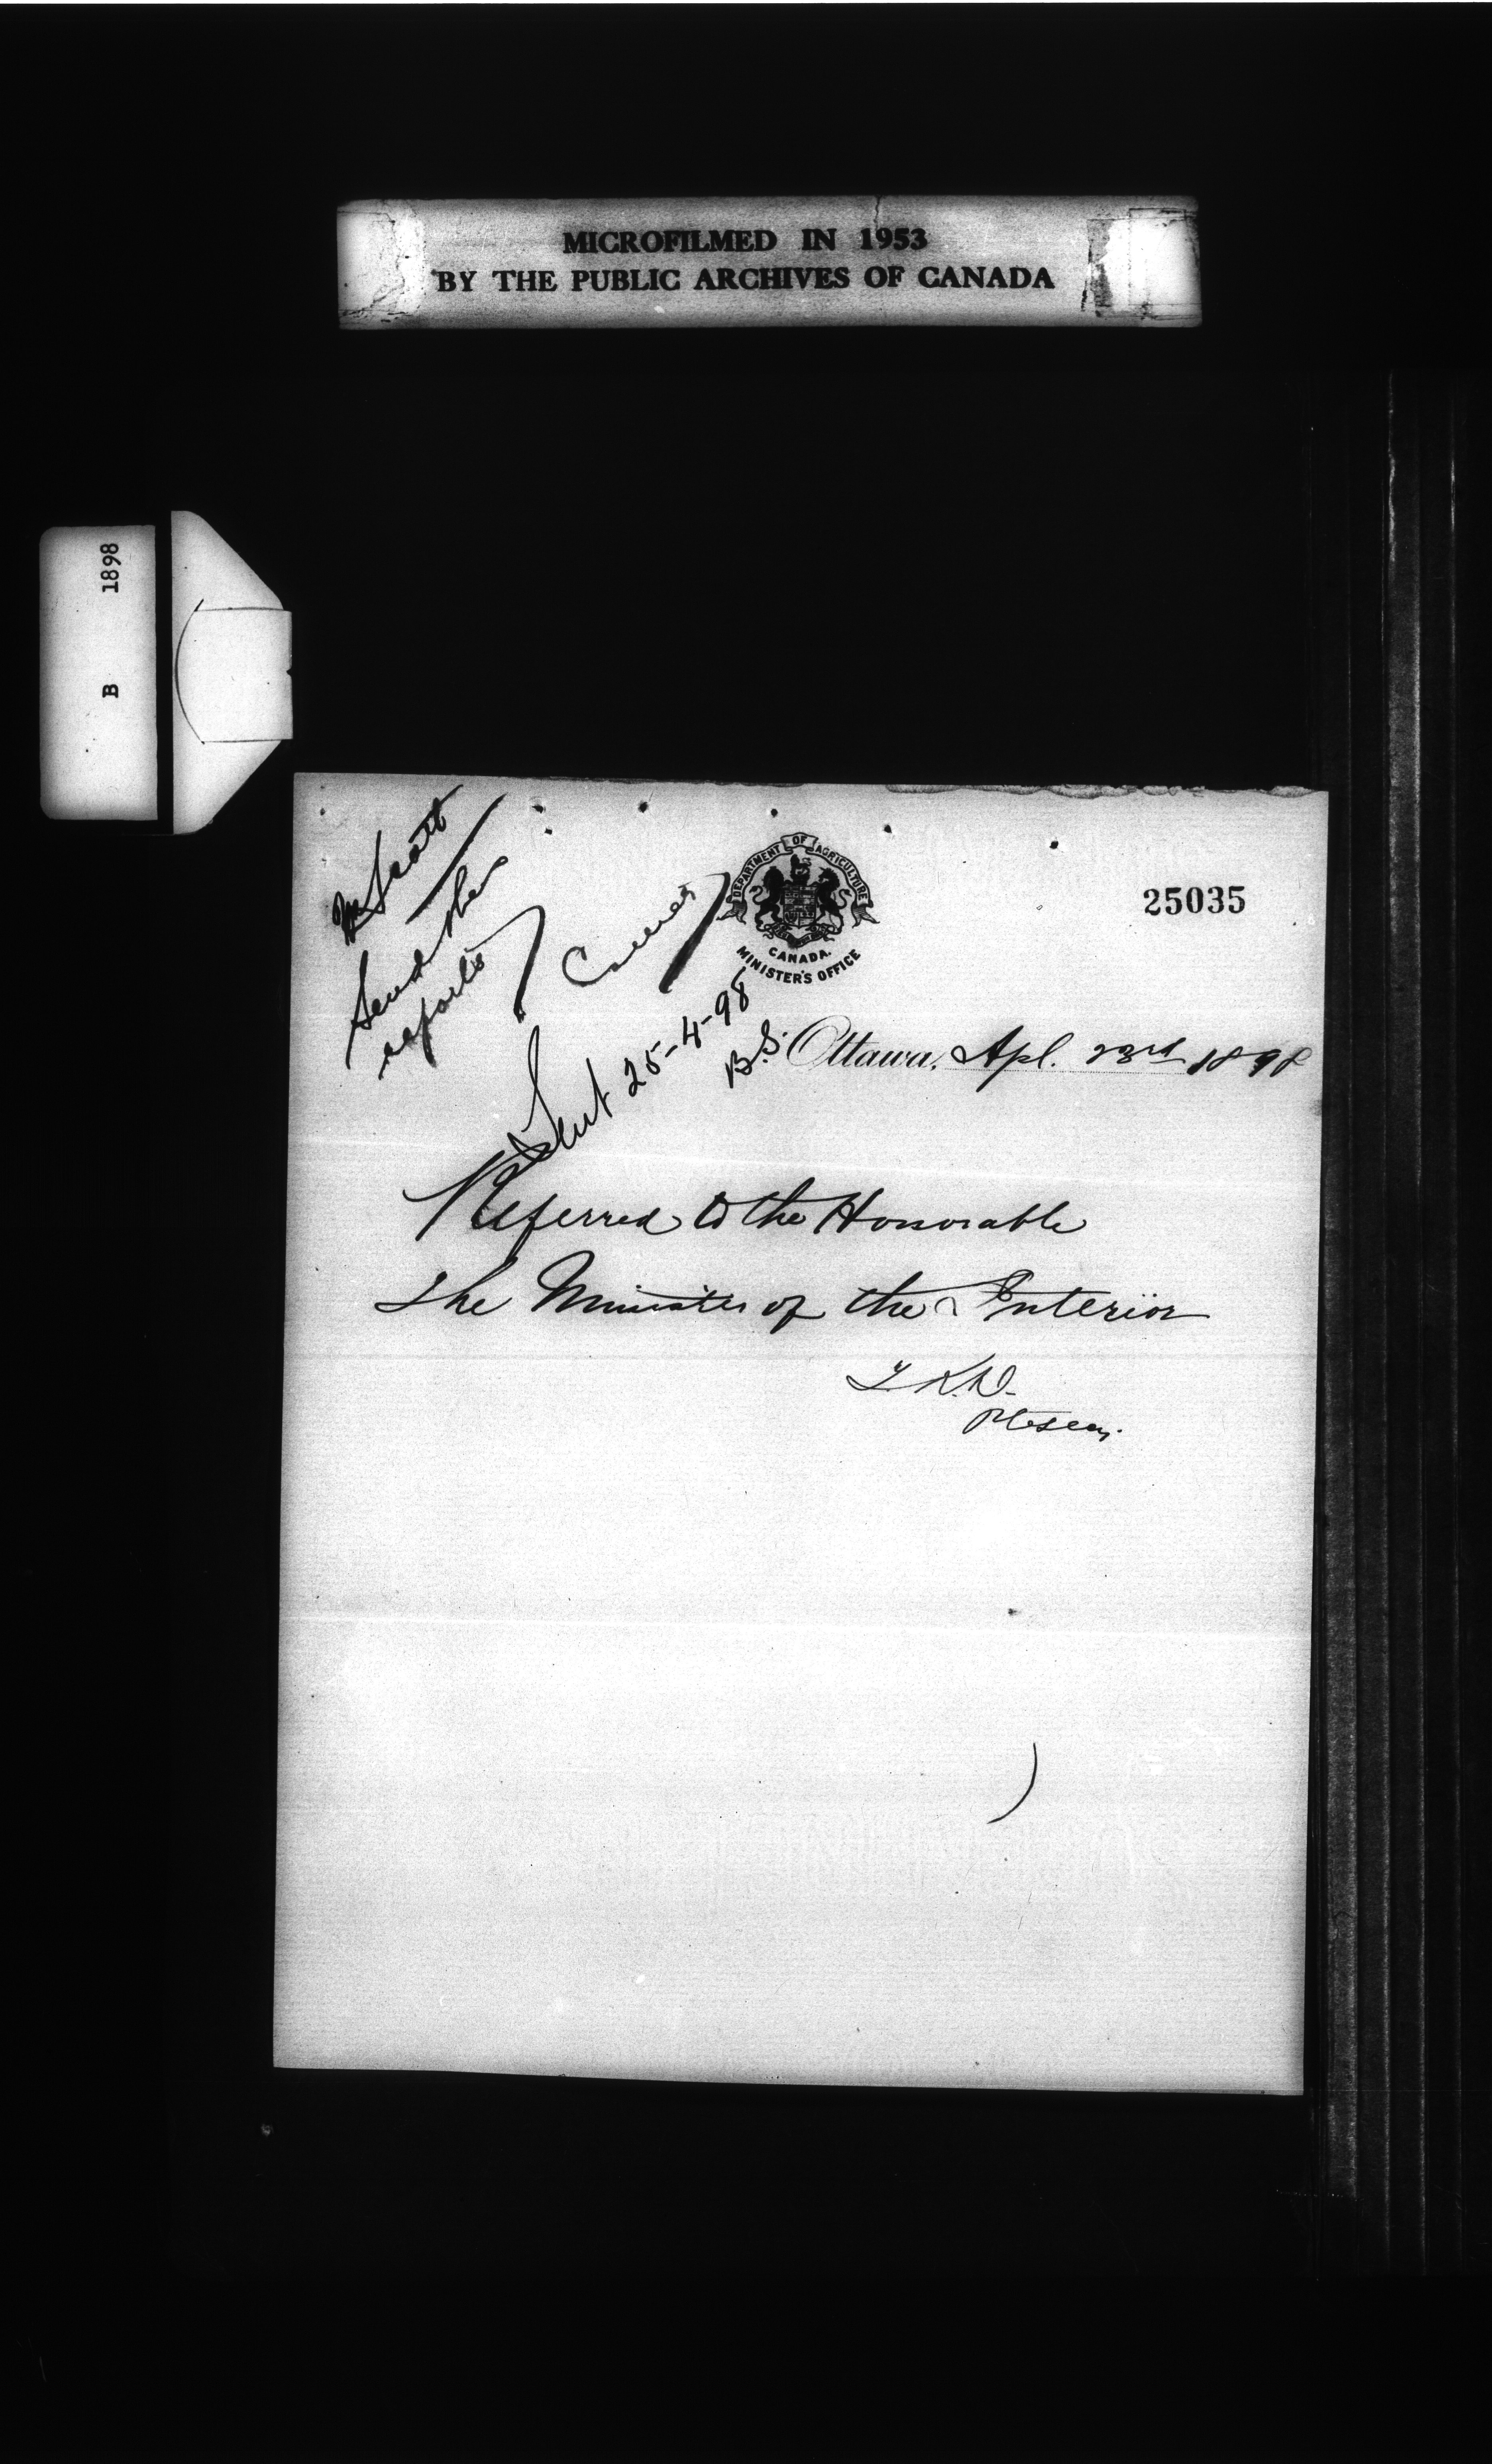 MICROFILMED IN 1953
BY THE PUBLIC ARCHIVES OF CANADA
B 1898
Mr Scott
Send the
reports
DEPARTMENT OF AGRICULTURE
CANADA.
MINISTER'S OFFICE
25035
Sent 25-4-98
B.S.
Ottawa, Apl. 23rd 1898
Referred to the Honorable
The Minister of the Interior